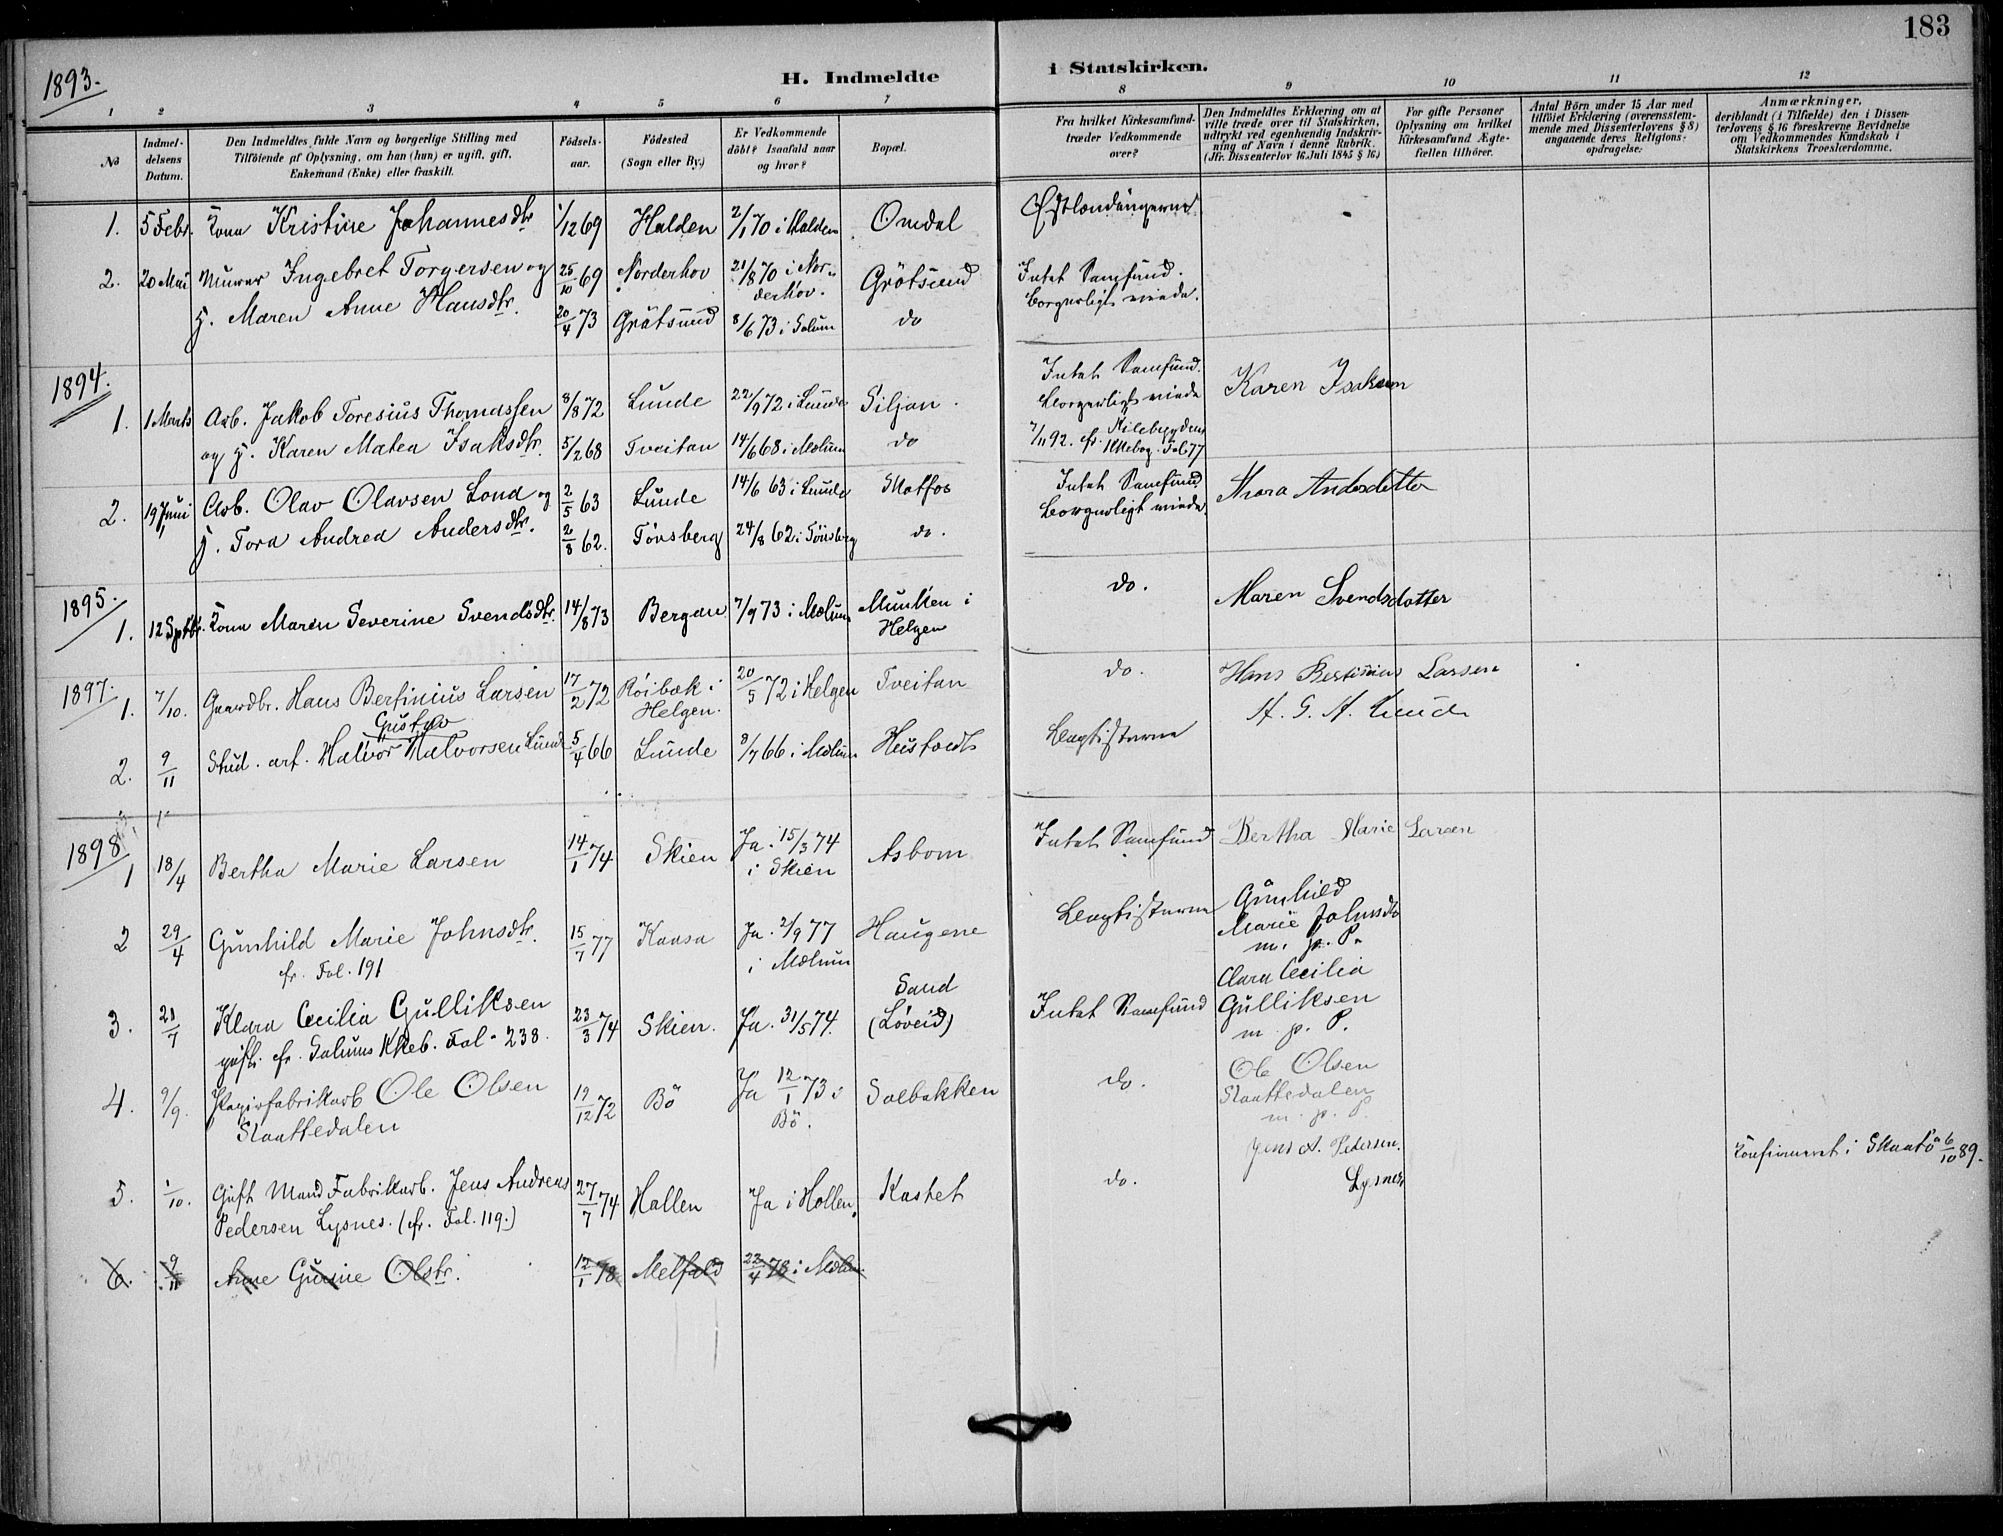 183
1893.
H. Indmeldte
i Statskirken.
1 2 3 4 5 6 7 8 9 10 11 12
No
Indmeldelsens Datum.
Den Indmeldtes fulde Navn og borgerlige Stilling med Tilføiende af Oplysning, om han (hun) er ugift, gift, Enkemand (Enke) eller fraskilt.
Fødselsaar.
Fødested (Sogn eller By.)
Er Vedkommende døbt? Isaafald naar og hvor?
Bopæl.
Fra hvilket Kirkesamfund træder Vedkommende over?
Den Indmeldtes Erklæring om at ville træde over til Statskirken, udtrykt ved egenhændig Indskrivning af Navn i denne Rubrik. (Jfr. Dissenterlov 16. Juli 1845 § 16.)
For gifte Personer Oplysning om hvilket Kirkesamfund Ægtefællen tilhører.
Antal Børn under 15 Aar med tilføiet Erklæring (overensstemmende med Dissenterlovens § 8) angaaende deres Religionsopdragelse.
Anmærkninger, deriblandt (i Tilfælde) den i Dissenterlovens § 16 foreskrevne Bevidnelse om Vedkommendes Kundskab i Statskirkens Troeslærdomme.
1. 5 Febr. Kona Kristine Johannesdtr. 1/12 69 Halden 2/1 70 i Halden Omdal
2. 20 Mai Murer Ingebret Torgersen og 25/10 69 Norderhov 21/8 70 i Norderhov. Grötsund Intet Samfund. borgerligt viede.
H. Maren Anne Hansdtr. 20/4 73 Grötsund 8/6 73 i Solum do
1894.
1. 1 Marts Arb. Jakob Toresius Thomassen 8/8 72 Lunde 22/9 72 i Lunde Siljan. Intet Samfund. borgerligt viede Karen Isaksen
og H. Karen Matea Isaksdtr. 5/2 68 Tveitan 14/6 68 i Mælum do 7/11 92. cfr. Kilebygdens Kkebog. Fol. 77
2. 19 Juni Arb. Olav Olavsen Lona og 2/5 63 Lunde 14/6 63 i Lunde Skotfos Intet Samfund borgerligt viede. Thora Andersdatter
H. Tora Andrea Andersdtr. 2/8 62. Tönsberg 24/8 62 i Tönsberg do.
1895.
1. 12 Septbr. Kona Maren Severine Svendsdtr. 14/8 73 Bergan 7/9 73 i Mælum Munken i Helgen do. Maren Svendsdatter
1897.
1. 7/10. Gaardbr. Hans Bertinius Larsen 17/2 72 Röibæk i Helgen. 20/5 72 i Helgen Tveitan do. Hans Bertinius Larsen
Gustav
2. 9/11 Stud. art. Halvor Halvorsen Lund 5/4 66 Lunde 8/7 66 i Mælum Baptisterne H. G. H. Lund
1898.
1 18/4 Bertha Marie Larsen 14/1 74 Skien Ja. 15/3 74 i Skien Asbom Intet Samfund Bertha Marie Larsen
2 29/4 Gunhild Marie Johnsdtr. 15/7 77 Kaasa Ja. 2/9 77 i Mælum Haugene Baptisterne Gunhild Marie Johnsdtr m. p. P.
cfr. Fol. 191
3. 21/7 Klara Cecilia Gulliksen 23/3 74 Skien. Ja. 31/5 74. Sand (Løveid) Intet Samfund Clara Cecilia Gulliksen m. p. P.
gift. cfr. Solums Kkeb. Fol. 238.
4. 9/9. Papirfabrikarb Ole Olsen Slaattedalen 19/12 72 Bö Ja 12/1 73 i Bö. Solbakken do. Ole Olsen Slaattedalen m. p. P.
5. 1/10. Gift Mand Fabrikarb. Jens Andreas 27/7 74 Hollen Ja i Hollen. Kastet do. Jens A. Pedersen Lysnes Konfirmeret i Skaatö 6/10 89.
Pedersen Lysnes. (cfr. Fol. 119.)
6. 9/11 Anne Gurine Olsdtr. 12/1 78 Melfald 22/4 78 i Mælum